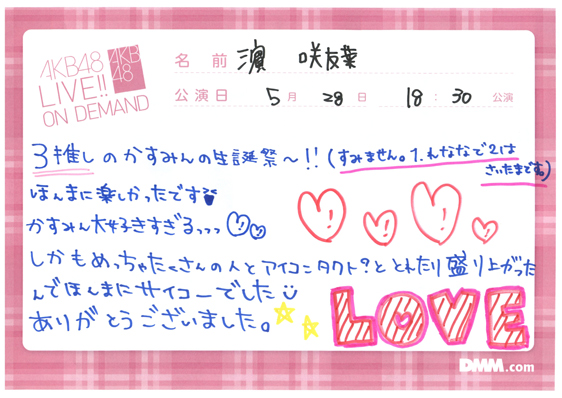 AKB48
LIVE!!
ON DEMAND
AKB
48
名 前 濵 咲友菜
公演日 5月 28日 18:30 公演
3推しのかすみんの生誕祭〜!!(すみません。1.れななで2は
さいたまです。)
ほんまに楽しかったです
かすみん大好きすぎるっっっ
しかもめっちゃたくさんの人とアイコンタクト?ととれたり盛り上がった
んでほんまにサイコーでした
ありがとうございました。
LOVE
DMM.com